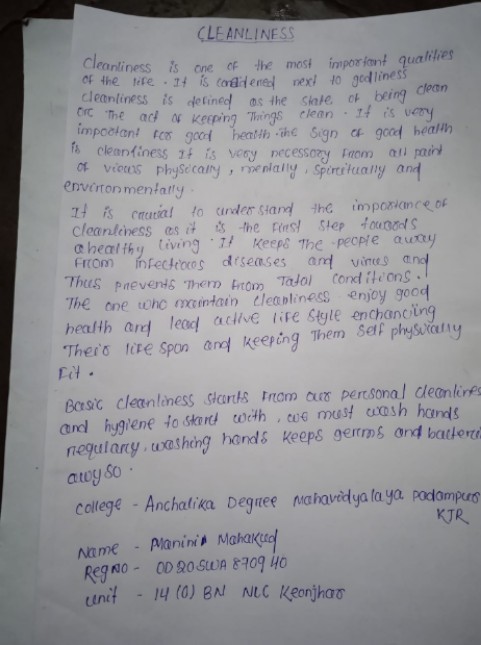 CLEANLINESS
Cleanliness is one of the most important qualities
of the life. It is considered next to godliness
cleanliness is defined as the state of being clean
or the act of keeping Things clean. It is very
important for good health. the sign of good health
is cleanliness It is very necessary from all paint
of views physically, mentally, spiritually and
environmentally.
It is crucial to understand the importance of
cleanliness as it is the first step towards
a healthy living. It keeps The people away
From infectious diseases and virus and
Thus prevents Them from Tatal conditions.
The one who maintain cleanliness enjoy good
health and lead active life style enchancing
Their life span and keeping Them self physically
Fit.
Basic cleanliness starts from our personal cleanlines
and hygiene to start with, we must wash hands
regulary, washing hands keeps germs and bacteri
away so.
college - Anchalika Degree Mahavidyalaya Padampur
KJR
Name - Manini Mahakud
Reg No - OD20SWA870940
unit - 14 (O) BN NCC Keonjhar